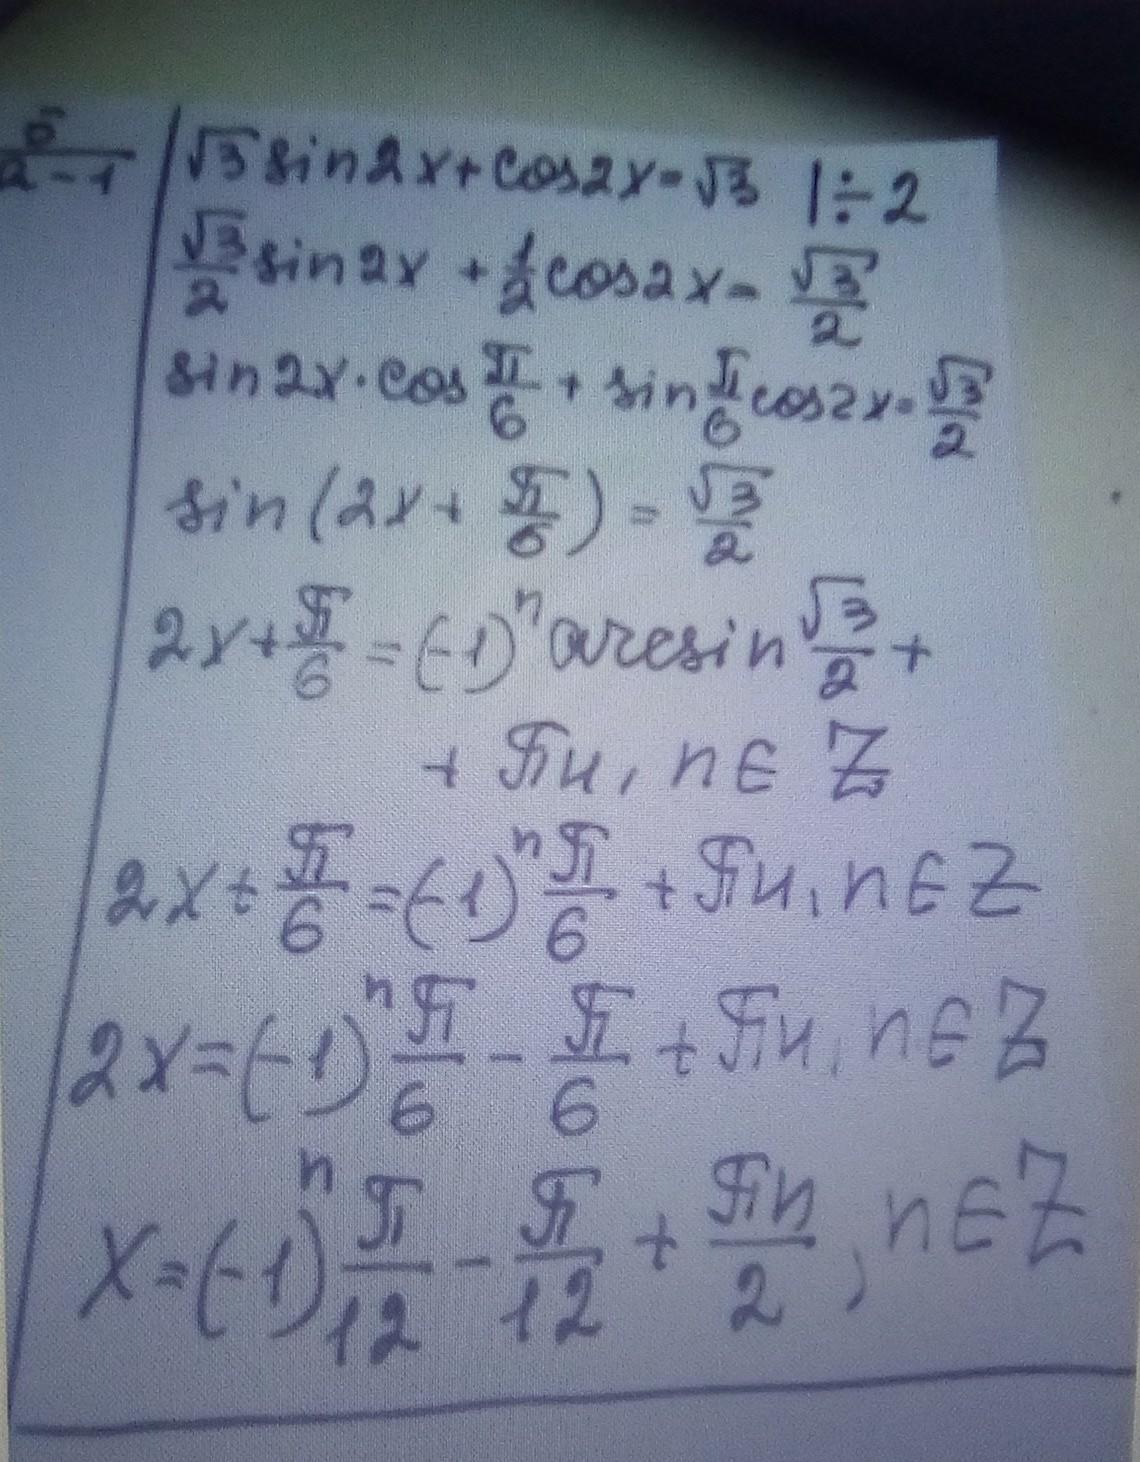 5/(2-1)
√3 sin2x + cos2x = √3 | ÷ 2
√3/2 sin2x + 1/2 cos2x = √3/2
sin2x · cos π/6 + sin π/6 cos2x = √3/2
sin(2x + π/6) = √3/2
2x + π/6 = (-1)ⁿ arcsin √3/2 +
+ πn, n ∈ Z
2x + π/6 = (-1)ⁿ π/6 + πn, n ∈ Z
2x = (-1)ⁿ π/6 - π/6 + πn, n ∈ Z
x = (-1)ⁿ π/12 - π/12 + πn/2, n ∈ Z